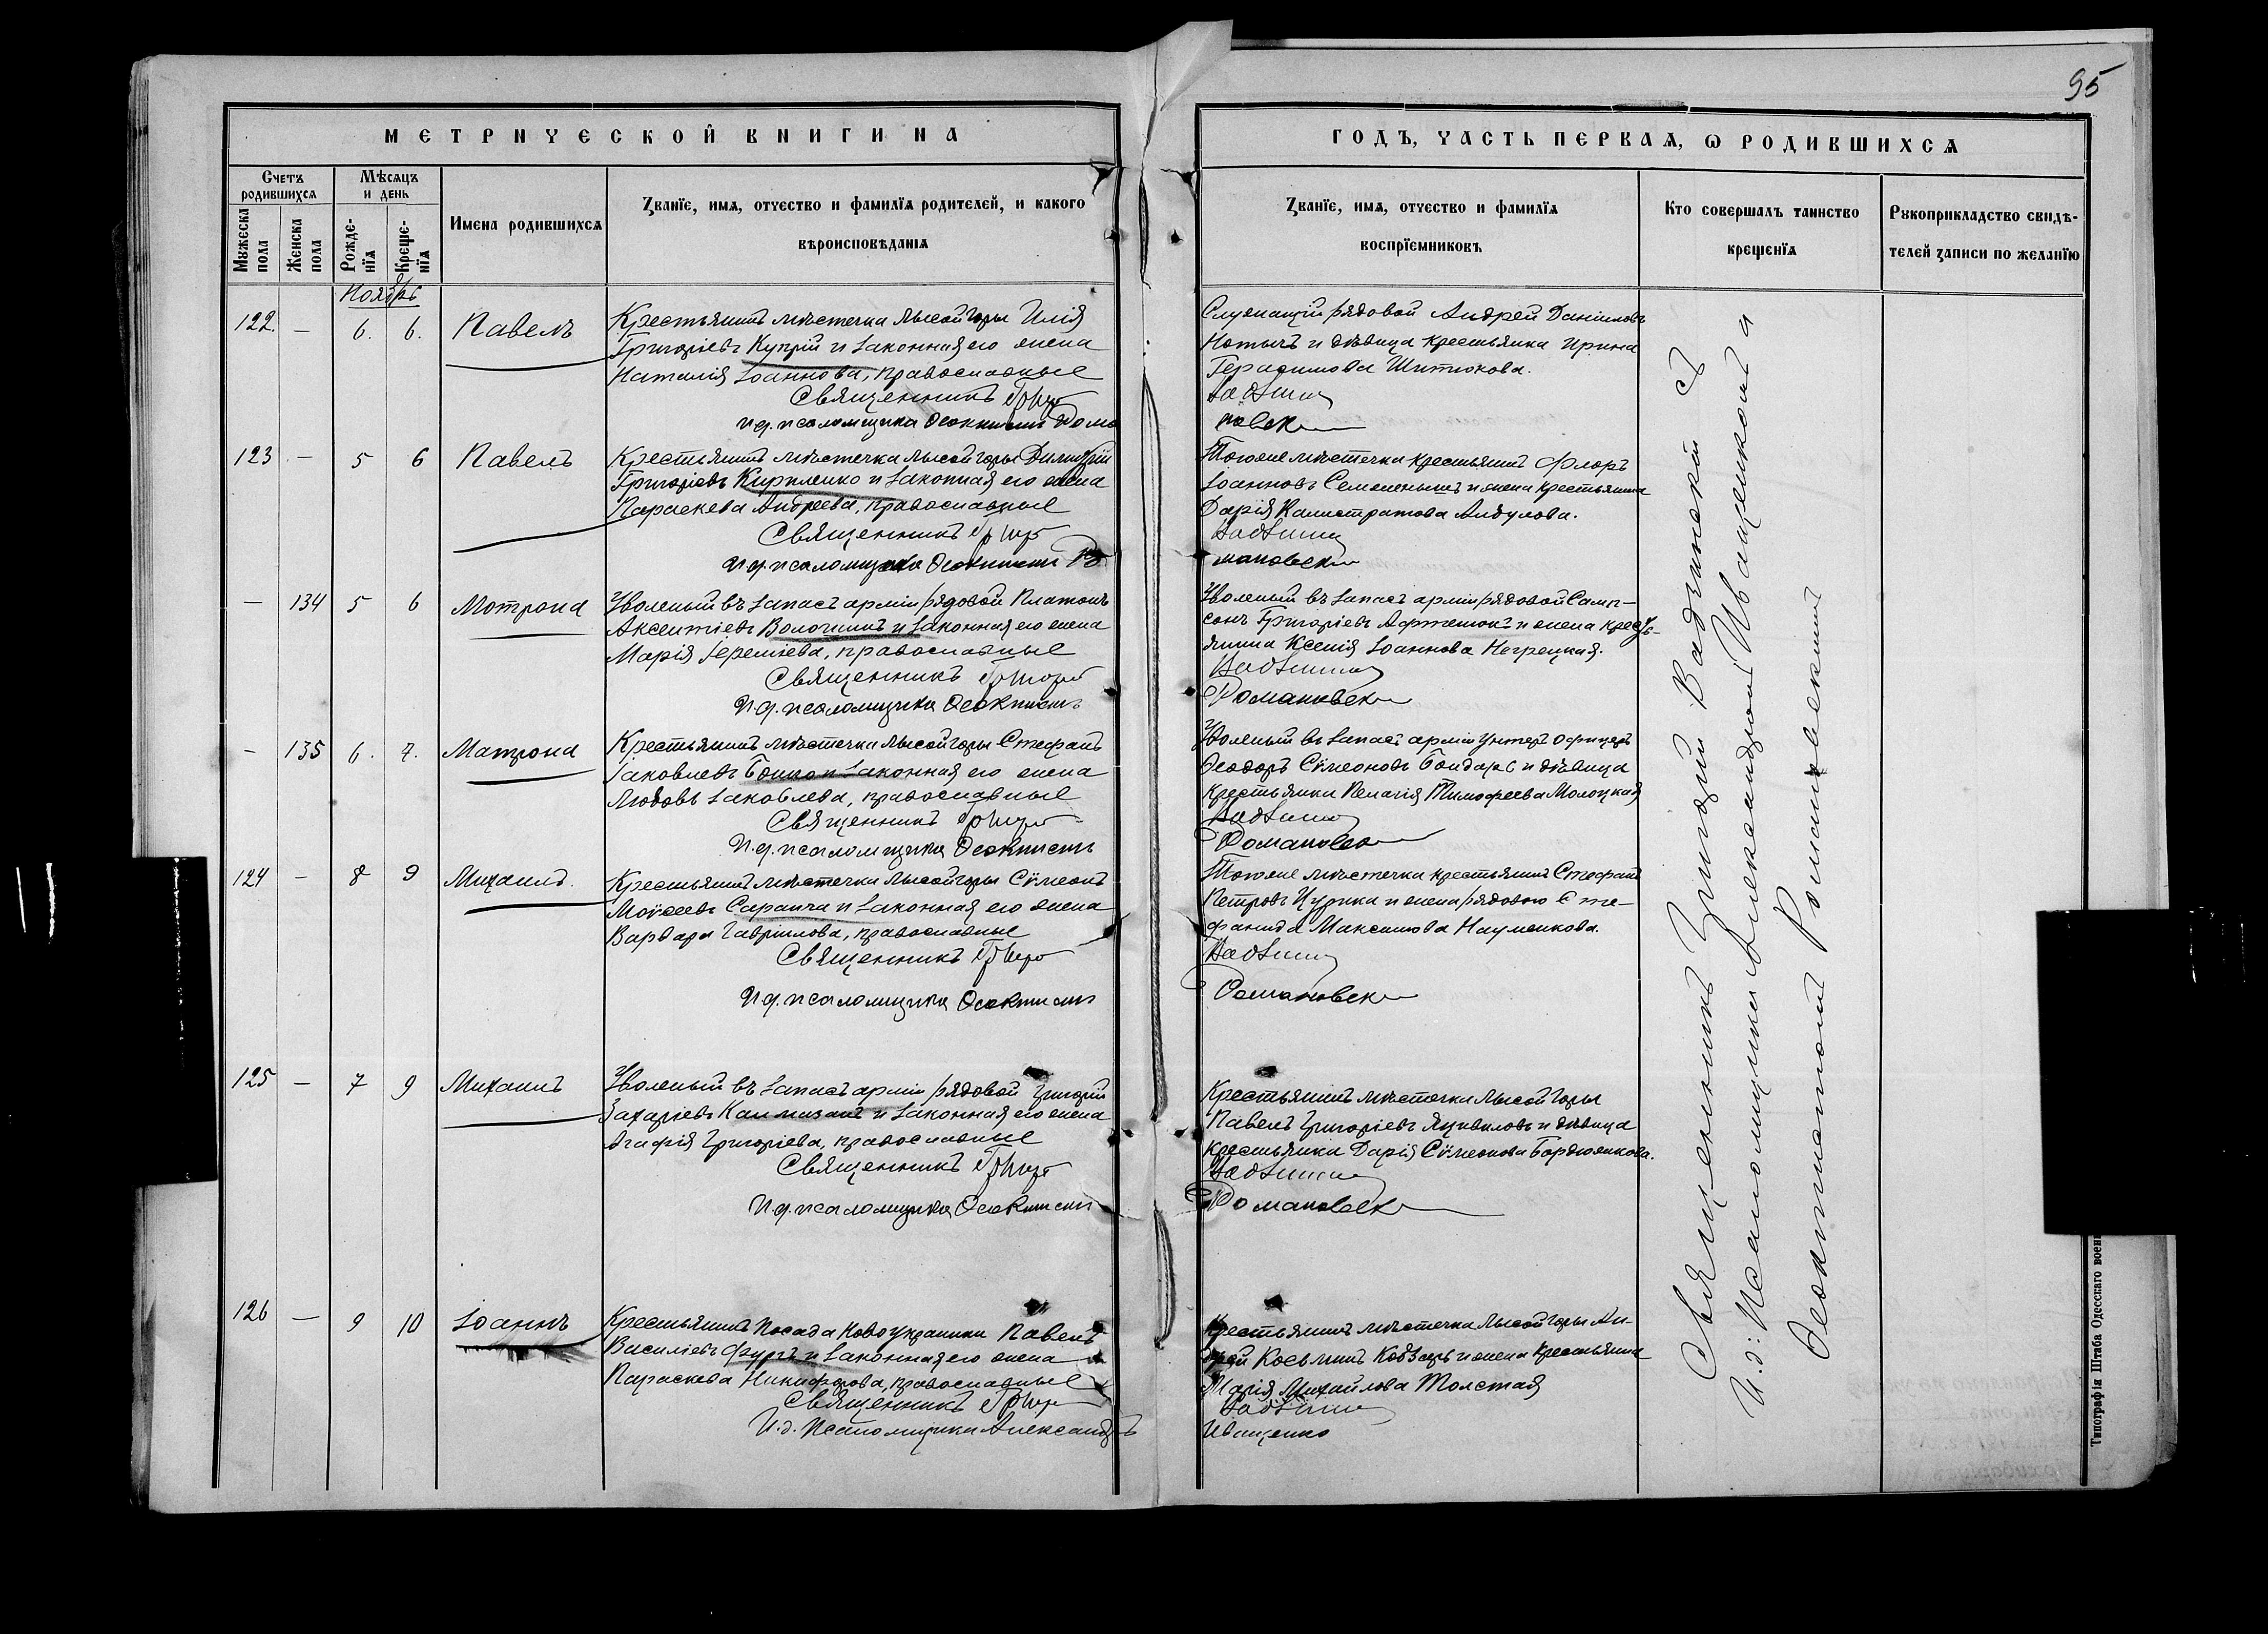 95
МЕТРИЧЕСКОЙ КНИГИ НА
ГОДЪ, ЧАСТЬ ПЕРВАЯ, Ѡ РОДИВШИХСЯ
Счетъ родившихся
Мѣсяцъ и день
Мужеска пола
Женска пола
Рожденїя
Крещенїя
Имена родившихся
Званїе, имя, отчество и фамилїя родителей, и какого
вѣроисповѣданїя
Званїе, имя, отчество и фамилїя
воспрїемниковъ
Кто совершалъ таинство
крещенїя
Рукоприкладство свидѣ-
телей записи по желанїю
Ноябрь
122. — 6. 6. Павелъ
Крестьянинъ мѣстечка Лысой Горы Илія
Григоріевъ Куприй и законная его жена
Наталія Іоаннова, православные
Священникъ Григо
И. д. псаломщика Ѳеоктистъ Рома
Служащій рядовой Андрей Даніиловъ
и дѣвица крестьянка Ирина
Герасимова Шитикова.
Вадзин
новск
123 — 5 6 Павелъ
Крестьянинъ мѣстечка Лысой Горы Димитрій
Григоріевъ Кириленко и законная его жена
Параскева Андреева, православные
Священникъ Григо
И. д. псаломщика Ѳеоктистъ Ро
Тогоже мѣстечка крестьянинъ Флоръ
Іоанновъ и жена крестьянина
Дарія Калистратова
Вадзин
мановск
— 134 5 6 Матрона
Уволеный въ запасъ арміи рядовой Платонъ
Аксентіевъ Волошинъ и законная его жена
Марія Іереміева, православные
Священникъ Григорій
И. д. псаломщика Ѳеоктистъ
Уволеный въ запасъ арміи рядовой Самп-
сонъ Григоріевъ и жена кресть-
янина Ксенія Іоаннова Негрецкая.
Вадзин
Романовск
— 135 6. 7. Матрона
Крестьянинъ мѣстечка Лысой Горы Стефанъ
Іаковлевъ и законная его жена
Любовь Іаковлева, православные
Священникъ Григо
И. д. псаломщика Ѳеоктистъ
Уволеный въ запасъ арміи унтеръ офицеръ
Ѳеодоръ Сѵмеоновъ Бондарь и дѣвица
крестьянка Пелагія Тимофеева Молоцкая
Вадзин
Романовск
124 — 8 9 Михаилъ.
Крестьянинъ мѣстечка Лысой Горы Сѵмеонъ
Моѵсеевъ Саранча и законная его жена
Варвара Гавріилова, православные
Священникъ Григо
И. д. псаломщика Ѳеоктистъ
Тогоже мѣстечка крестьянинъ Стефанъ
Петровъ Цурика и жена рядового Сте-
фанида Максимова Науменкова.
Вадзин
Романовск
125 — 7 9 Михаилъ
Уволеный въ запасъ арміи рядовой Григорій
Захаріевъ Калмазанъ и законная его жена
Агафія Григоріева, православные
Священникъ Григо
И. д. псаломщика Ѳеоктистъ
Крестьянинъ мѣстечка Лысой Горы
Павелъ Григоріевъ и дѣвица
крестьянка Дарія Сѵмеонова Бордюжкова.
Вадзин
Романовск
126 — 9 10 Іоаннъ
Крестьянинъ посада Новоукраинки Павелъ
Василіевъ Фурсъ и законная его жена
Параскева Никифорова, православные
Священникъ Григо
И. д. Псаломщика Александръ
Крестьянинъ мѣстечка Лысой Горы Ан-
дрей Косьминъ Кобзарь и жена крестьянина
Марія Михайлова Толстая
Вадзин
Иващенко
Священникъ Григорій Вадзинскій
И. д. Псаломщика Александръ Иващенко и
Ѳеоктистъ Романовскій
Типографія Штаба Одесскаго воен